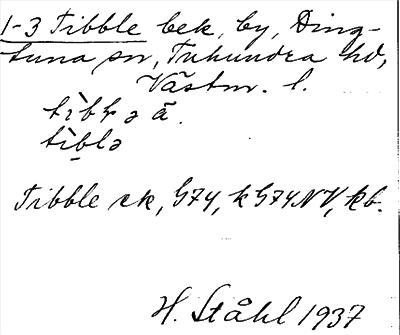 1-3 Tibble bek, by, Ding-
tuna sn, Tuhundra hd,
Västm. l.
tìbḷə ā.
tìblə
Tibble ek, G74, k G74NV, kb.
H. Ståhl 1937